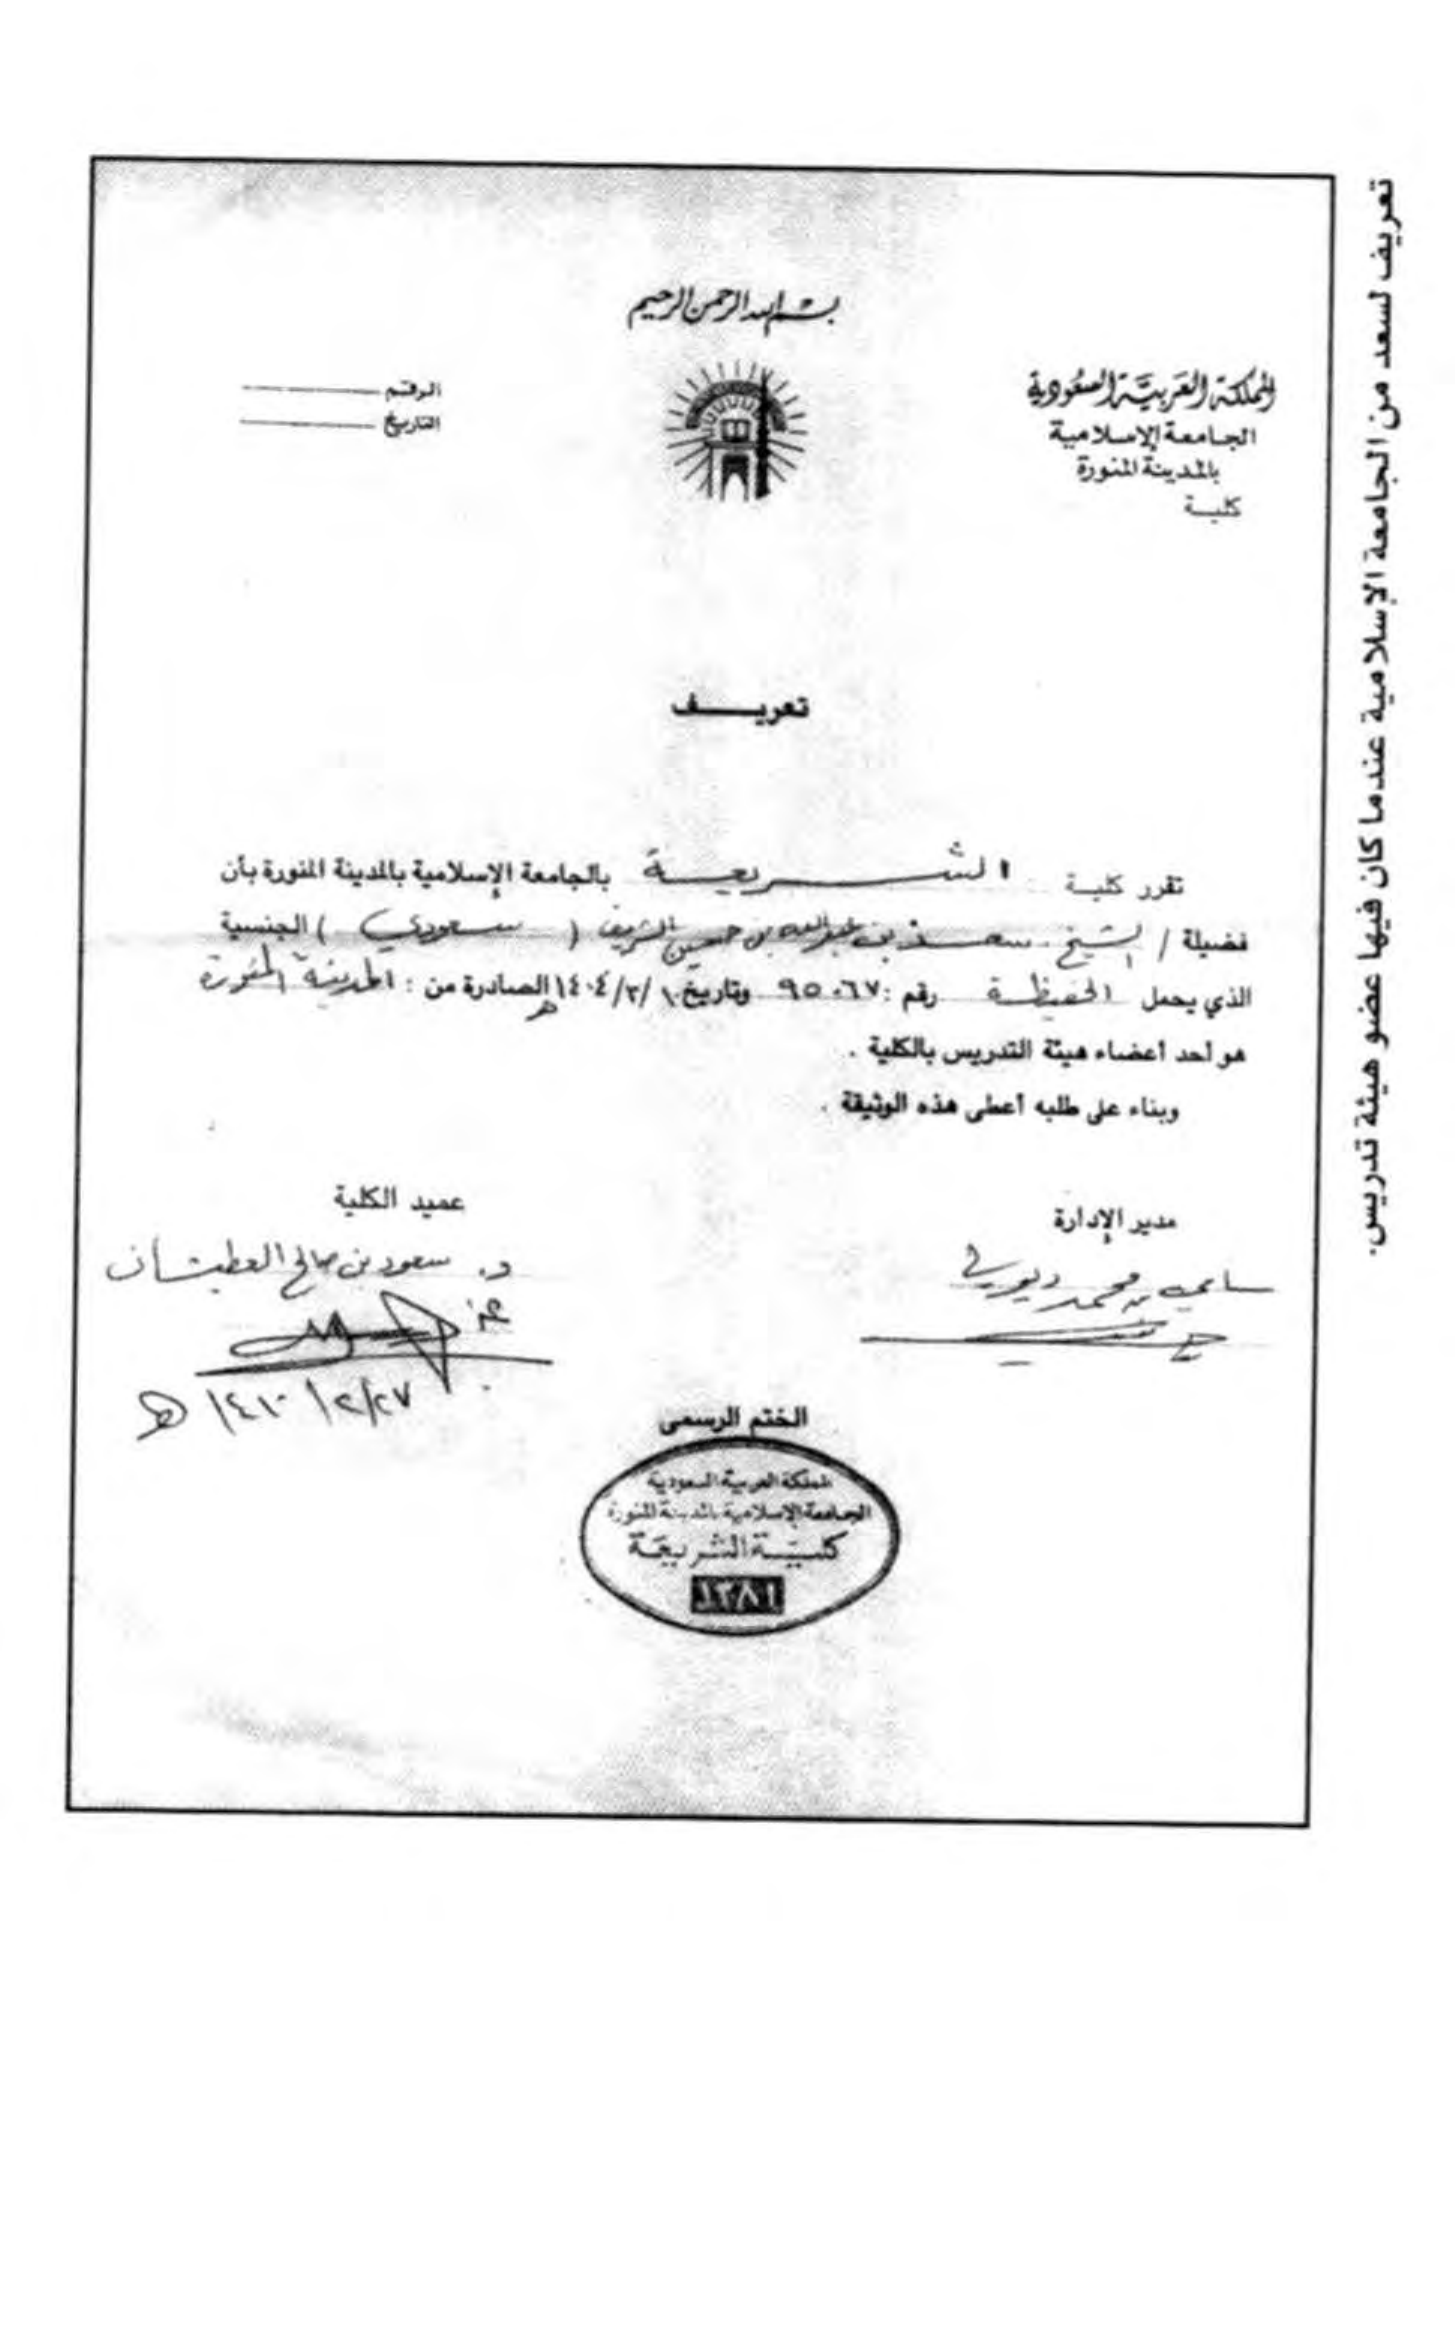 تعريف لسعد من الجامعة الإسلامية عندما كان فيها عضو هيئة تدريس.
بسم الله الرحمن الرحيم
المملكة العربية السعودية
الجامعة الإسلامية
بالمدينة المنورة
كلية
الرقم
التاريخ
تعريف
تقرر كلية الشريعة بالجامعة الإسلامية بالمدينة المنورة بأن
فضيلة / الشيخ سعد بن عبد الله بن حسين الشريف ( سعودي ) الجنسية
الذي يحمل الحفيظة رقم : ٩٥٠٦٧ وتاريخ ١٤٠٤/٣/١٠هـ الصادرة من : المدينة المنورة
هو أحد أعضاء هيئة التدريس بالكلية .
وبناء على طلبه أعطى هذه الوثيقة .
مدير الإدارة
سامي بن محمد
عميد الكلية
د. سعود بن صالح العطيشان
عنه
١٤١٠/٢/٢٧ هـ
الختم الرسمى
المملكة العربية السعودية
الجامعة الإسلامية بالمدينة المنورة
كلية الشريعة
١٣٨١